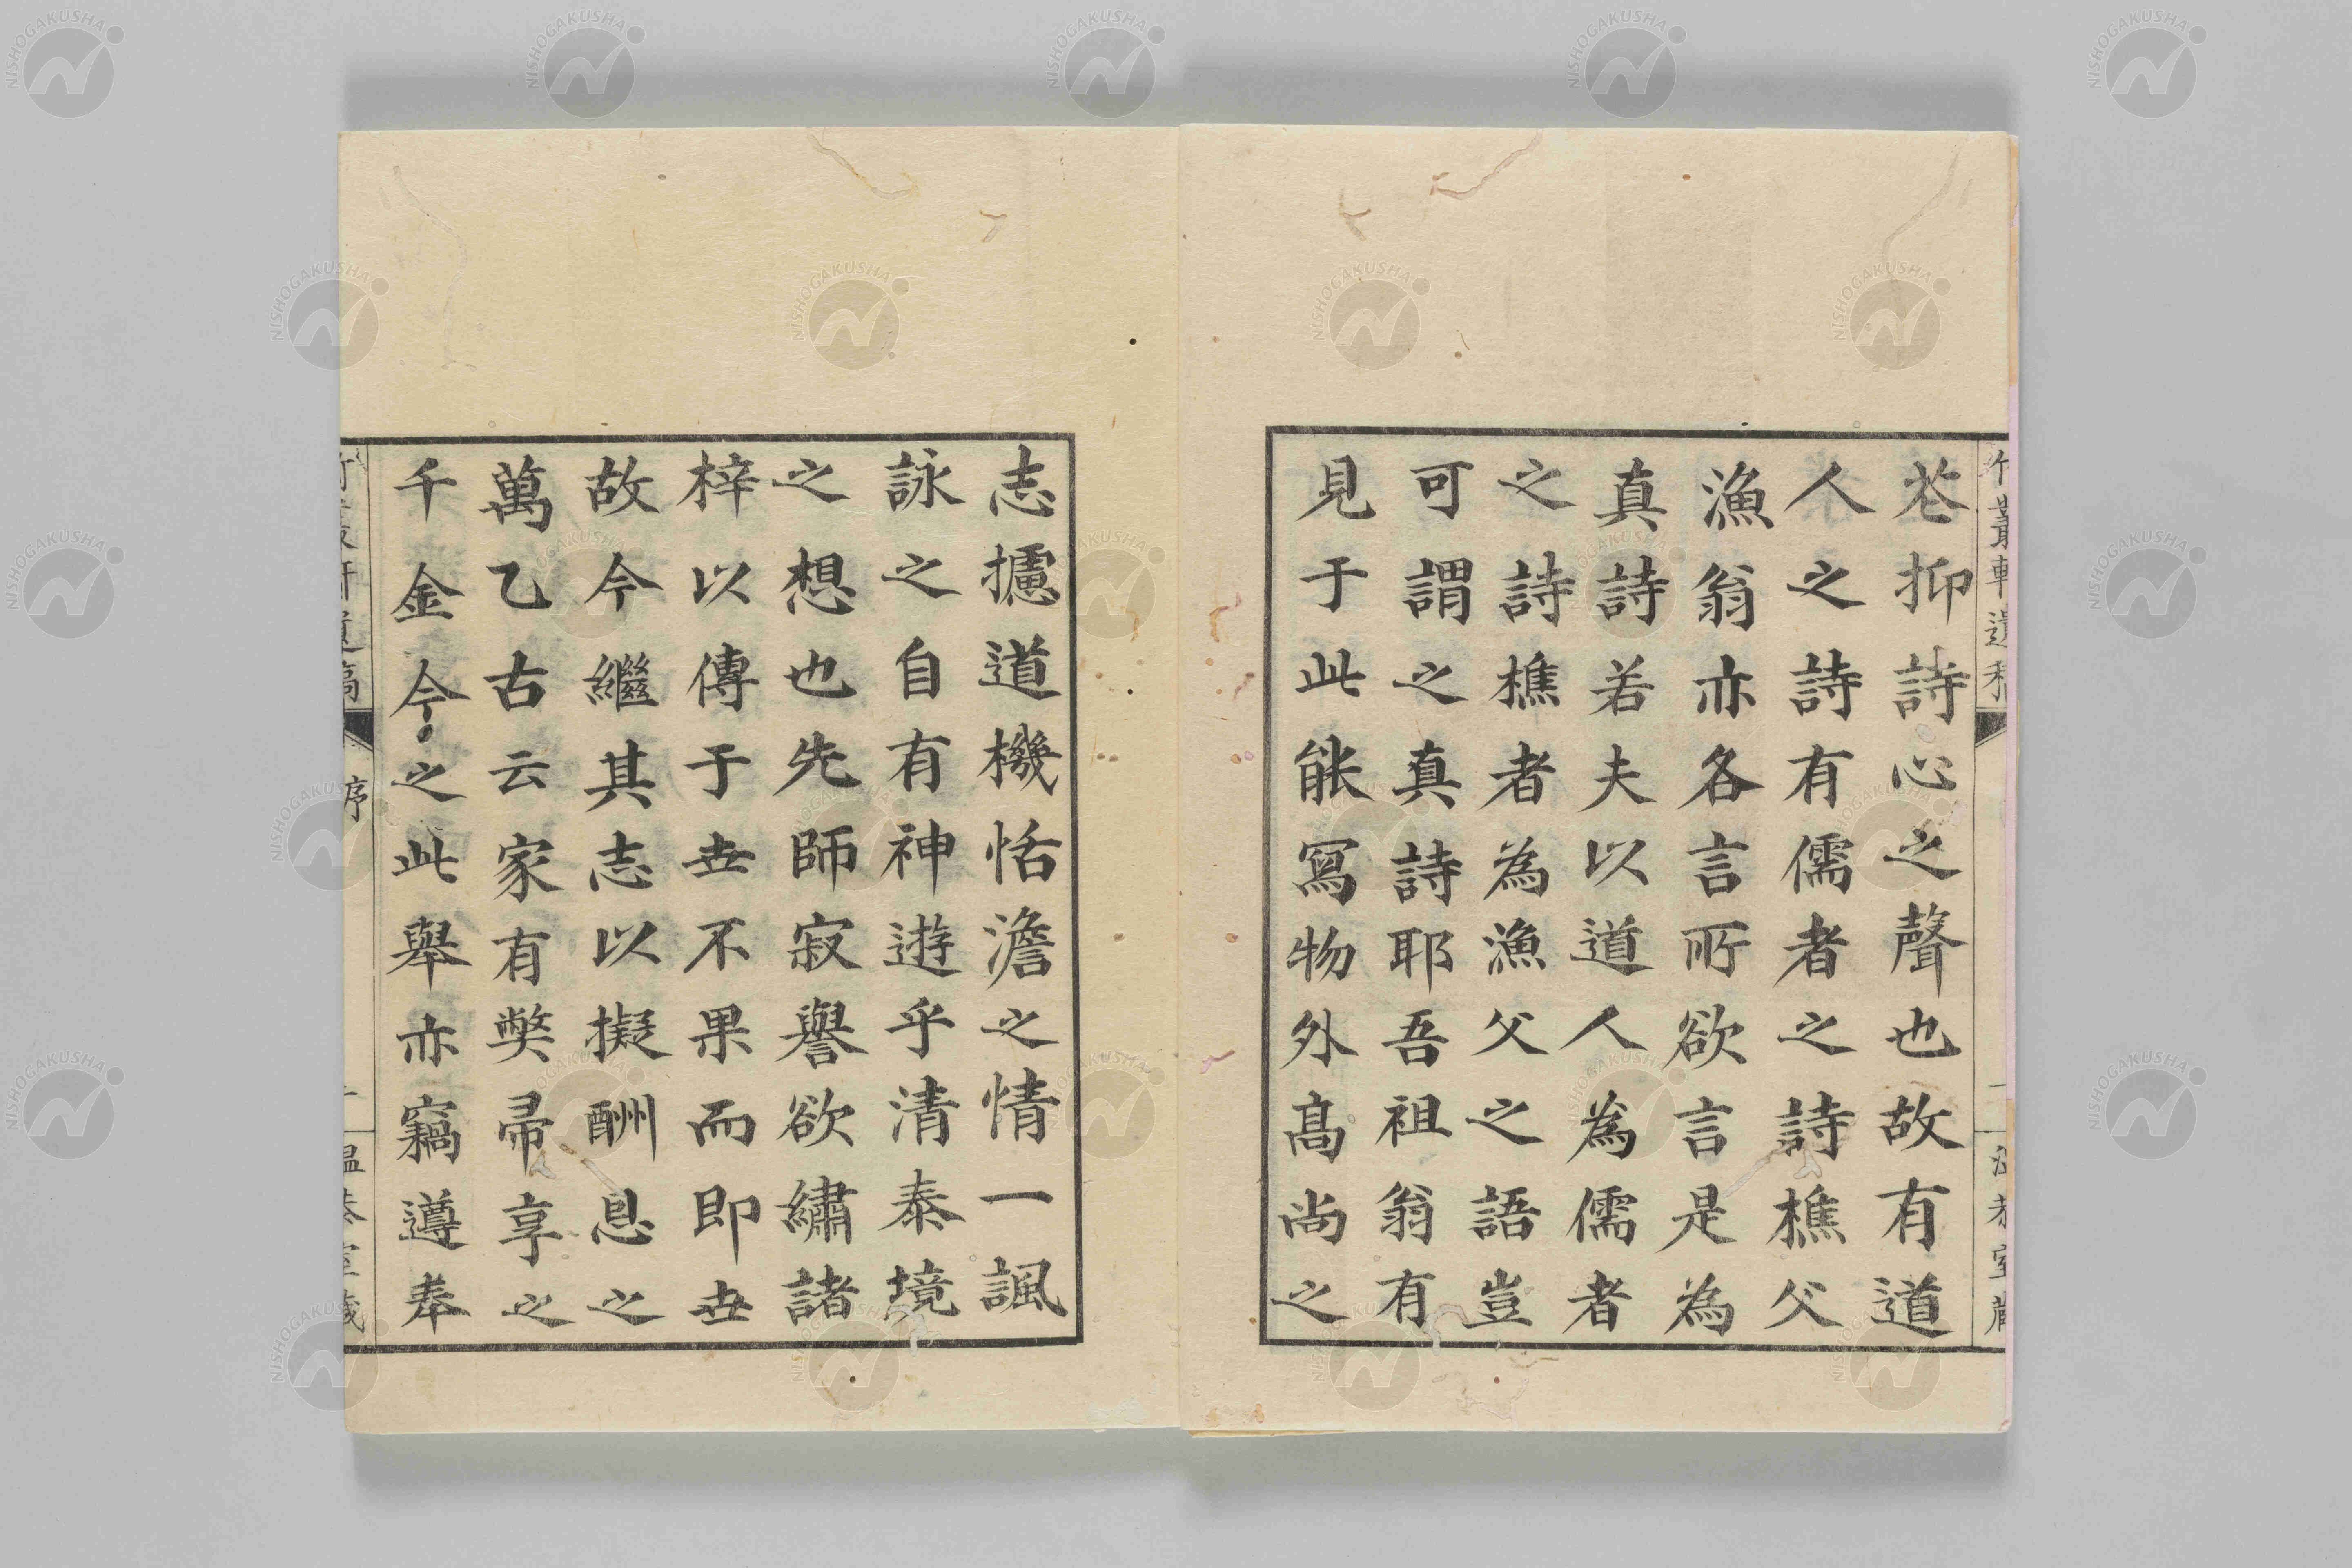 苍抑詩心之聲也故有道
人之詩有儒者之詩樵父
漁翁亦各言所欲言是為
真詩若夫以道人為儒者
之詩樵者為漁父之語豈
可謂之真詩耶吾祖翁有
見于此能冩物外髙尚之
志攄道機恬澹之情一諷
詠之自有神遊乎清泰境
之想也先師寂譽欲繡諸
梓以傳于丗不果而即丗
故今繼其志以擬酬恩之
萬乙古云家有獘帚享之
千金今之此舉亦竊遵奉
序
NISHOGAKUSHA